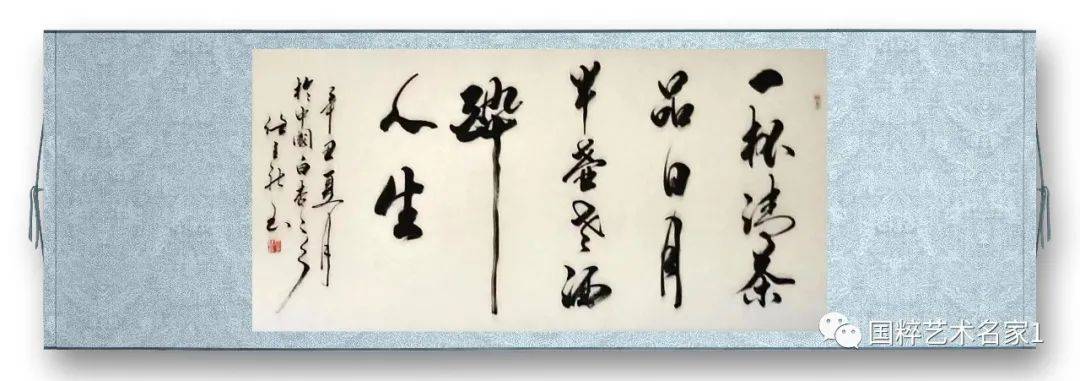 一杯清茶
品日月
半壺老酒
醉
人生
辛丑夏月
於中國白杏之乡
国粹艺术名家1